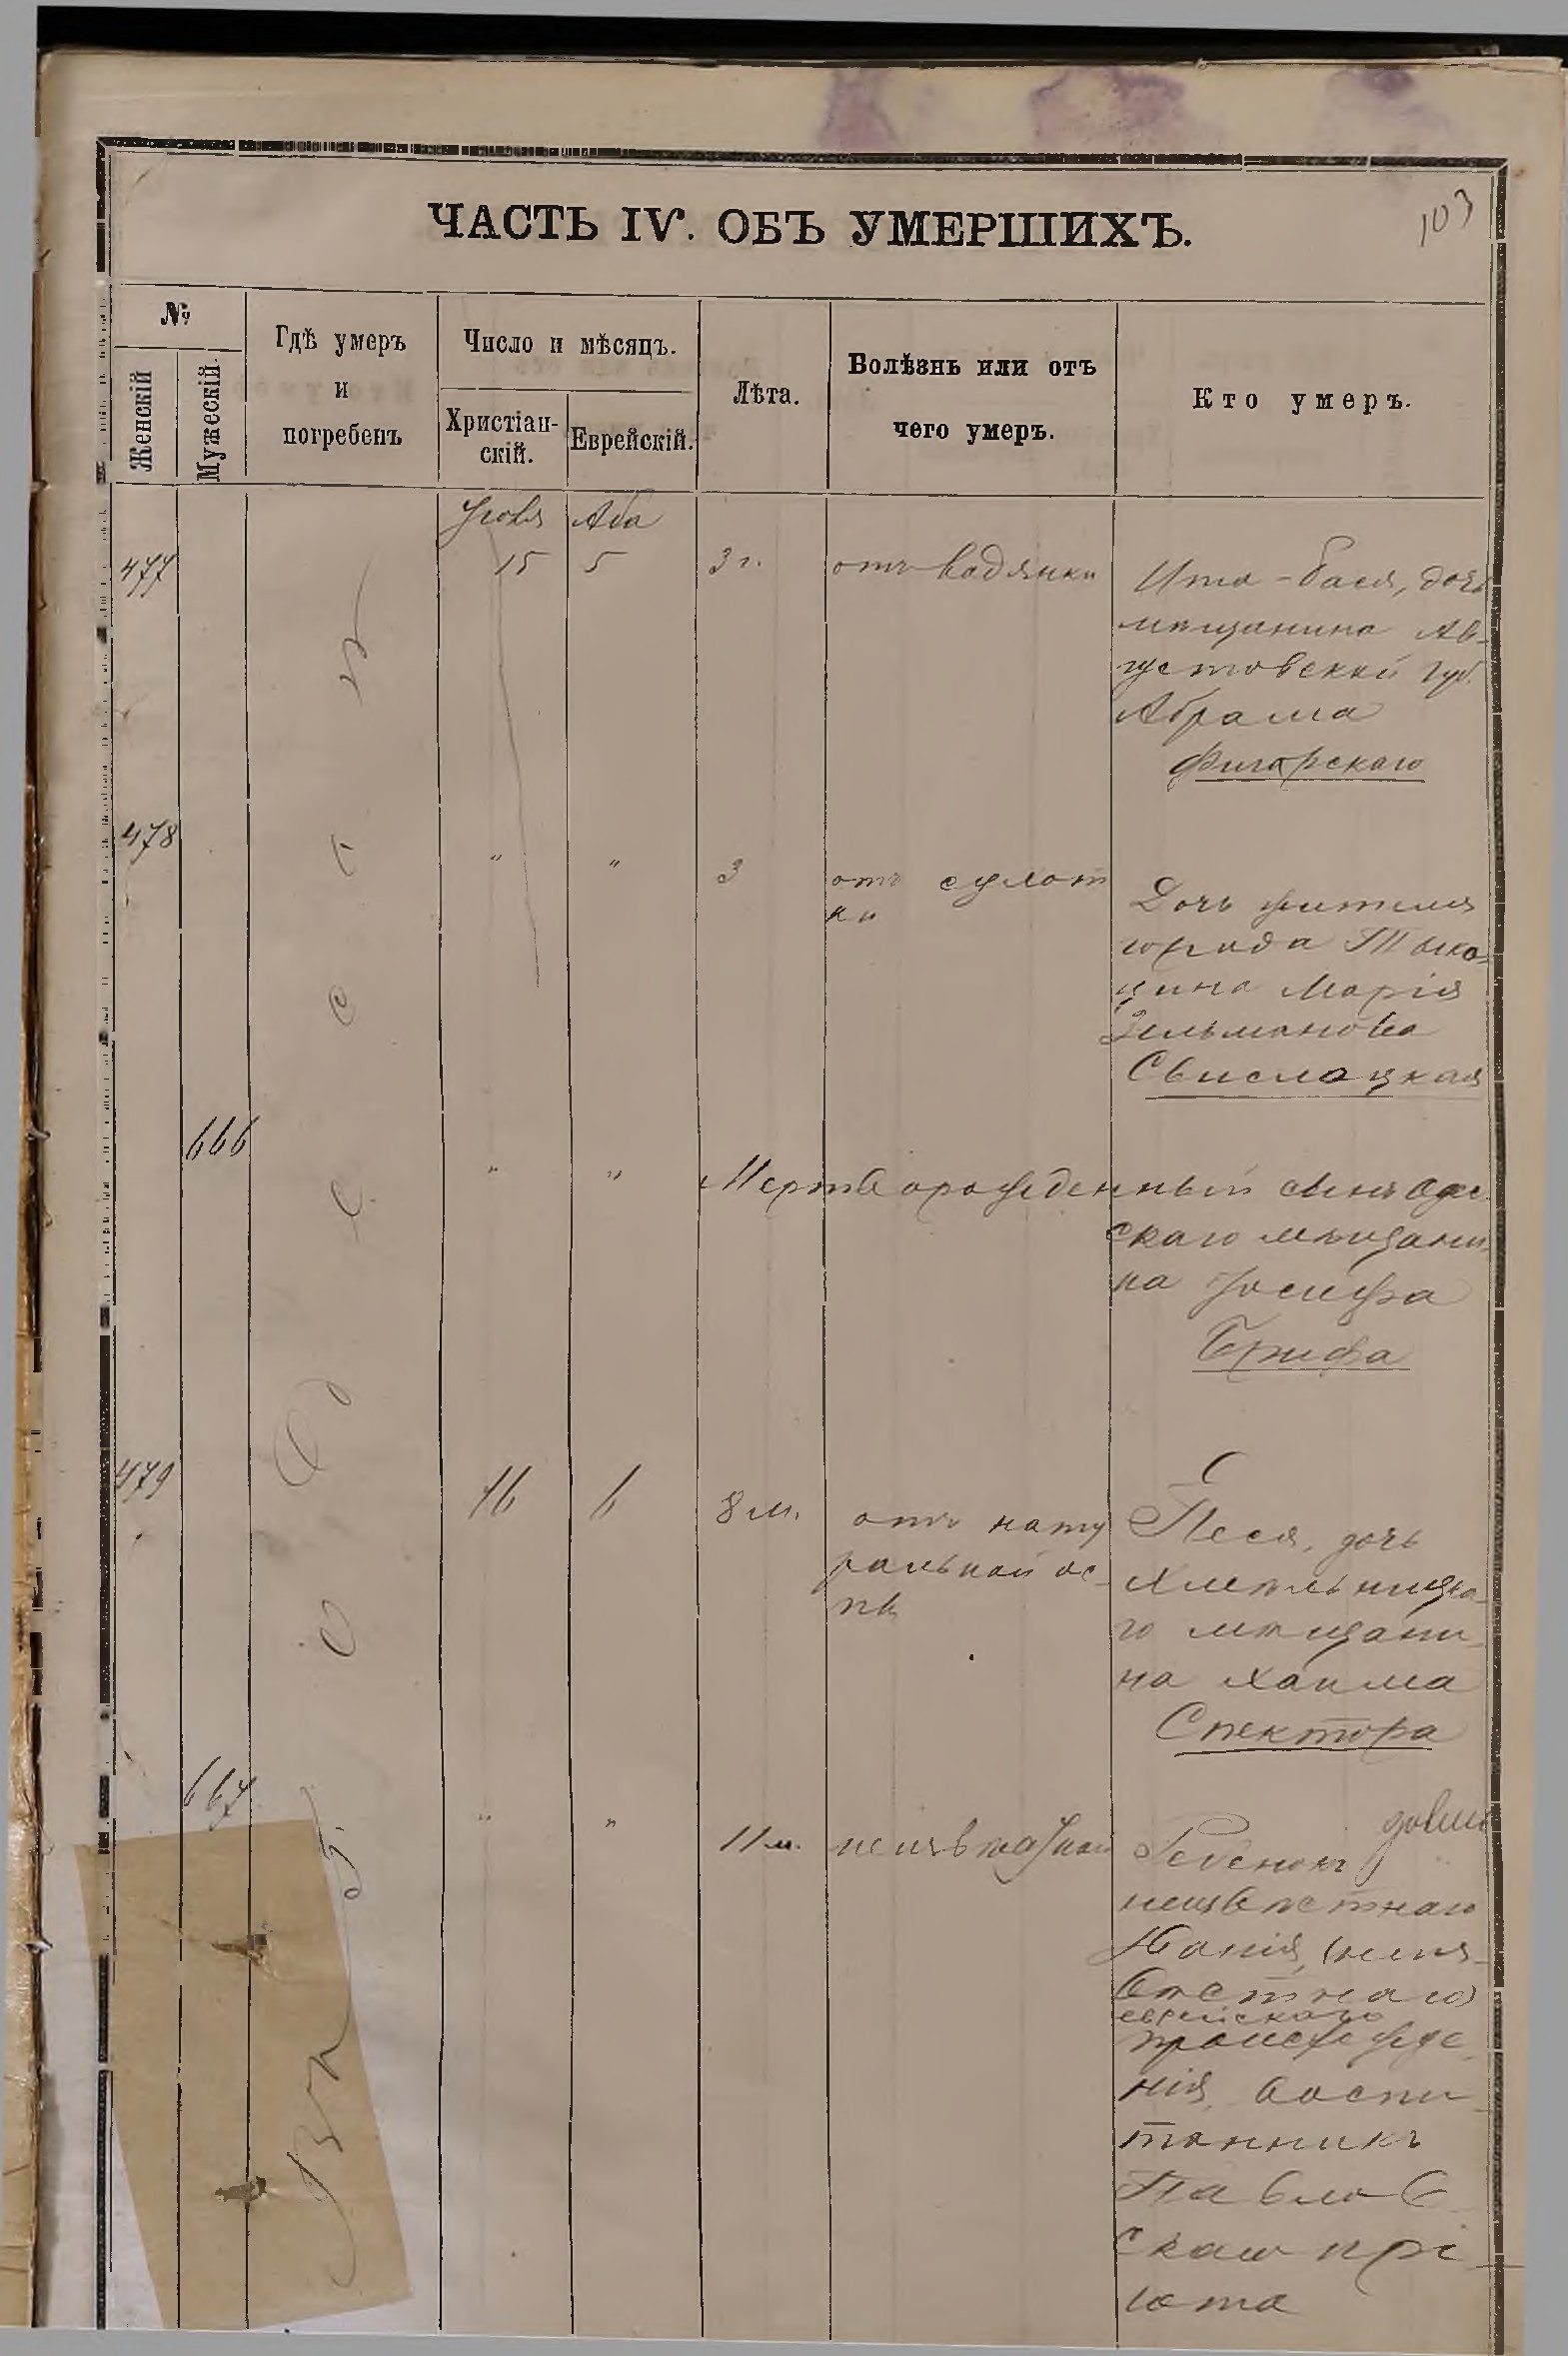 103
ЧАСТЬ IV. ОБЪ УМЕРШИХЪ.
№
Женскій
Мужескій.
Гдѣ умеръ
и
погребенъ
Число и мѣсяцъ.
Христіан-
скій.
Еврейскій.
Лѣта.
Болѣзнь или отъ
чего умеръ.
Кто умеръ.
Въ г. Одессѣ
Іюля Аба
477 15 5 3 г. отъ водянки
Ита-Бася, дочь
мѣщанина Ав-
густовской губ.
Абрама
Фигорскаго
478 " " 3 отъ сухот
ки
Дочь жителя
города Тыко-
цина Марія
Зельманова
Свислоцкая
666 " " Мертворожденный сынъ Одес
скаго мѣщани-
на Іосифа
479 16 6 8 м. отъ нату
ральной ос-
пы
Песя, дочь
Хмельницка-
го мѣщани-
на Хаима
Спектора
667 " " 11 м.
Ребенокъ
неизвѣстнаго
званія, (неиз-
вѣстнаго)
еврейскаго
происхожде-
нія, воспи-
танникъ
Павлов-
скаго прі-
юта